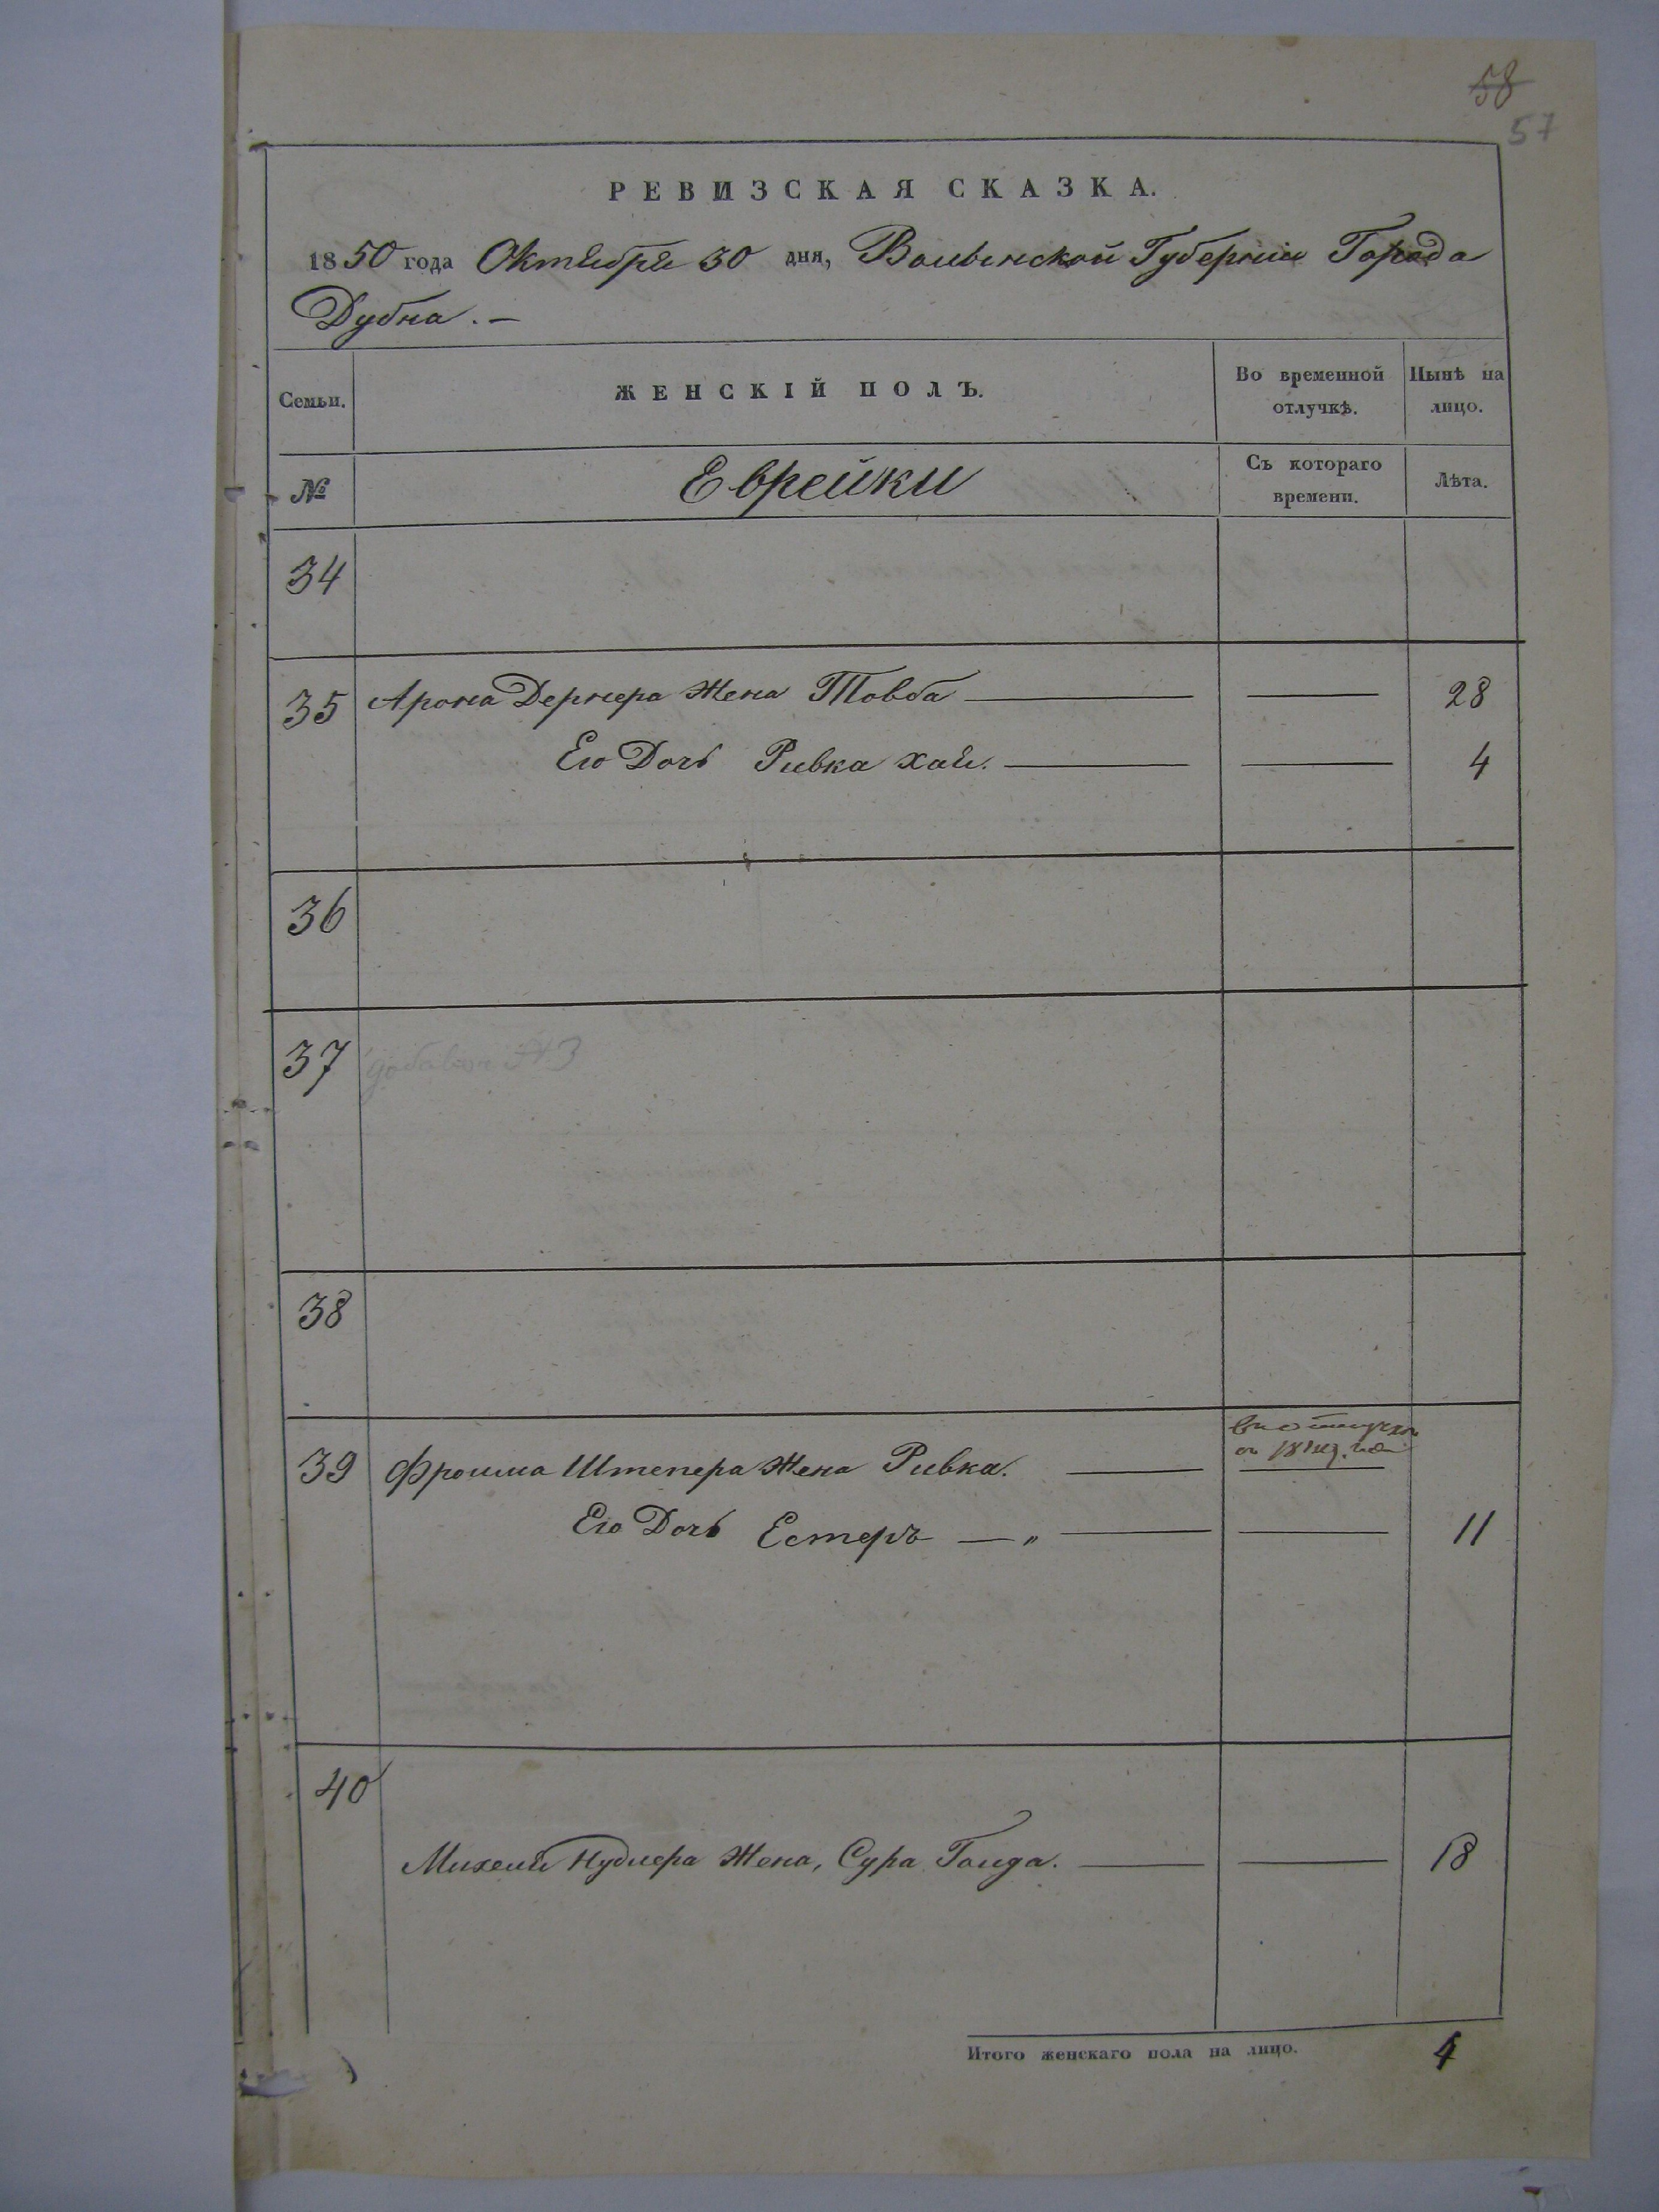 58
57
РЕВИЗСКАЯ СКАЗКА.
1850 года Октября 30 дня, Волынской Губерніи Города
Дубна. —
Семьи.
ЖЕНСКІЙ ПОЛЪ.
Во временной отлучкѣ.
Нынѣ на лицо.
№
Еврейки
Съ котораго времени.
Лѣта.
34
35 Арона Дернера Жена Товба — — 28
Его Дочь Ривка Хая. — — 4
36
37 добавоч. № 3
38
39 Фроима Штепера Жена Ривка. —
Его Дочь Естеръ — „ — — 11
40
Михеля Нудлера Жена, Сура Голда. — — 18
Итого женскаго пола на лицо. 4